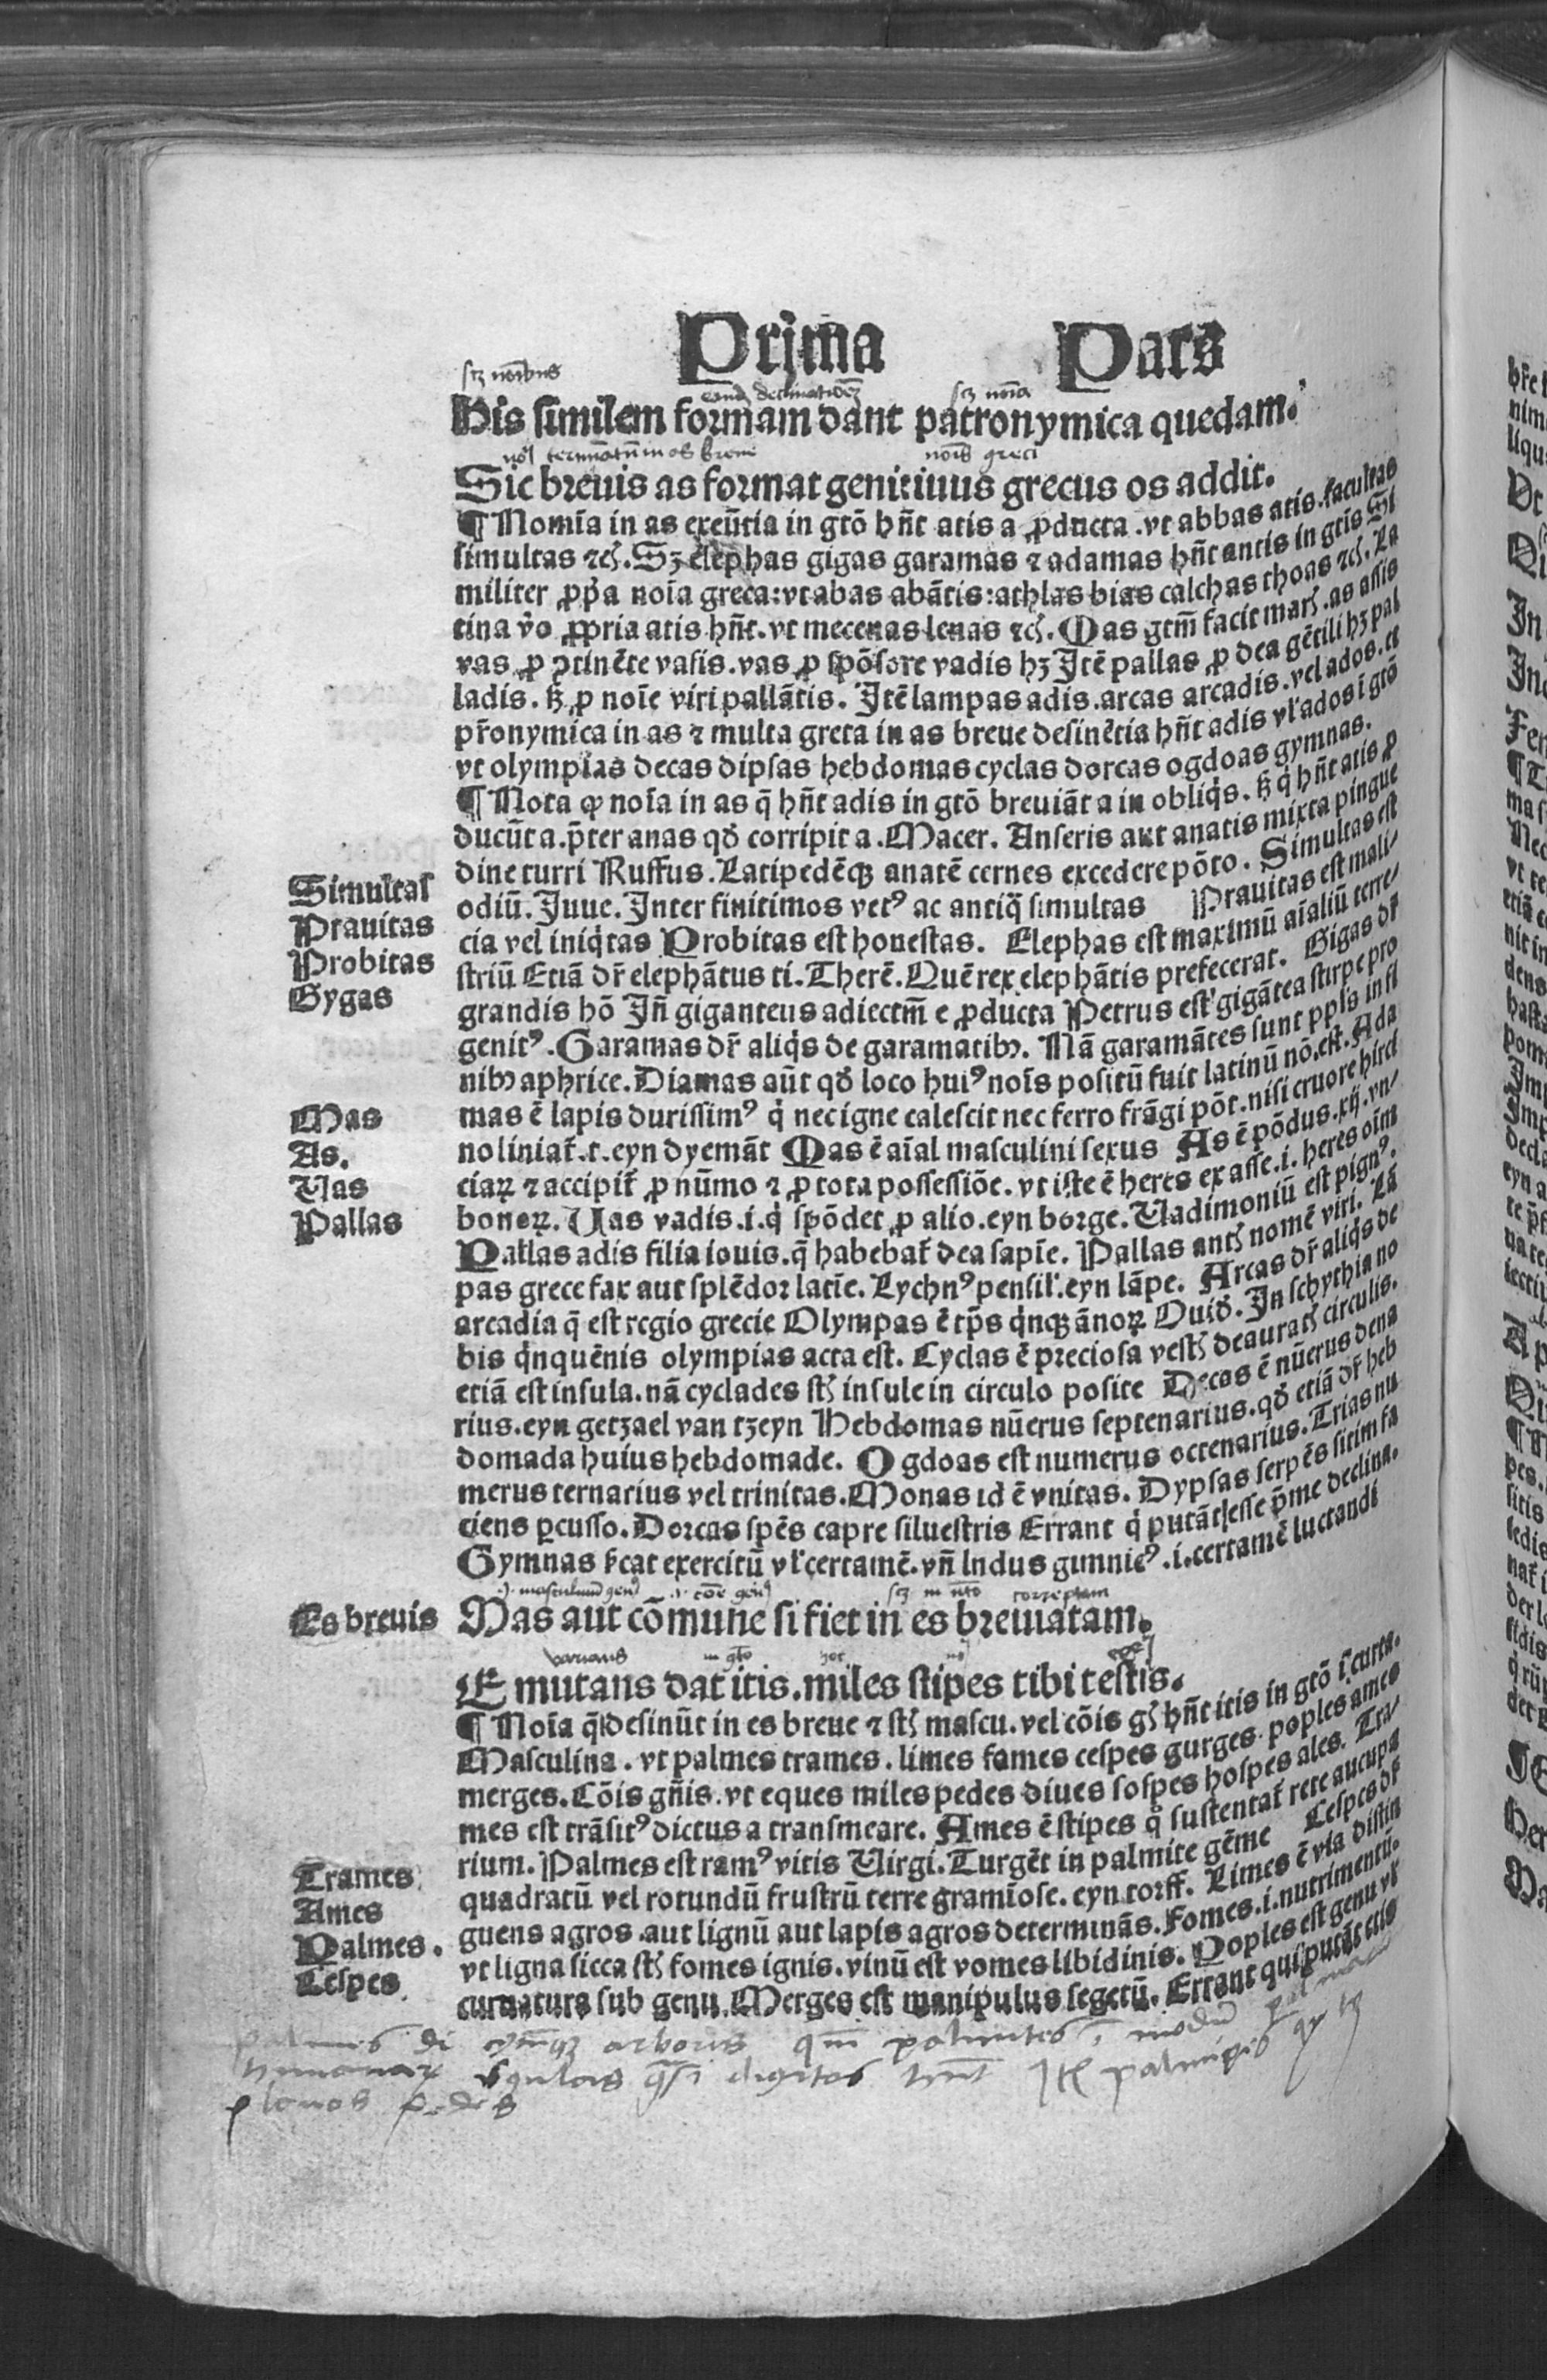 Prima Pars
scz noibus
eand declinationez scz noia
His similem formam dant patronymica quedam.
noibus greci
Sic brevis as format genitiuus grecus os addit.
¶ Noīa in as exeūtia in gtō hn̄t atis a ꝓducta .vt abbas atis.facultas
simultas ⁊cꝭ. Sꝫ elephas gigas garamas ⁊ adamas hn̄t antis in gtis Si
militer ꝓpa noīa greca:vt abas abātis:athlas bias calchas thoas ⁊cꝭ. La
tina v̄o ꝓpria atis hn̄t.vt mecenas lenas ⁊cꝭ. Mas gtm̄ facit marꝭ.as assis
vas ꝓ ↄtinēte vasis.vas ꝓ spōsore vadis hꝫ Itē pallas ꝓ dea gētili hꝫ pal
ladis. ꝭꝫ ꝓ noīe viri pallātis. Itē lampas adis.arcas arcadis.vel ados.et
pr̄onymica in as ⁊ multa greca in as breue desinētia hn̄t adis vl' ados ī gtō
vt olympias decas dipsas hebdomas cyclas dorcas ogdoas gymnas.
¶ Nota ꝙ noīa in as q̄ hn̄t adis in gtō breuiāt a in obliq̇s. ꝭꝫ q̇ hn̄t atis ꝓ
ducūt a.p̄ter anas qd̄ corripit a.Macer. Anseris aut anatis mixta pingue
dine turri Ruffus.Latipedēqꝫ anatē cernes excedere pōto. Simultas est
odiū.Iuue.Inter finitimos vetꝰ ac antiq̄ simultas Prauitas est mali-
cia vel iniq̇tas Probitas est honestas. Elephas est maximū aīaliū terre-
striū Etiā dr̄ elephātus ti.Therē.Quē rex elephātis prefecerat. Gigas dr̄
grandis hō In̄ giganteus adiectm̄ e ꝓducta Petrus est gigātea stirpe pro
genitꝰ.Garamas dr̄ aliq̇s de garamatibꝰ. Nā garamātes sunt ppl̄s in fi
nibꝰ aphrice.Diamas aūt qd̄ loco huiꝰ noīs positū fuit latinū nō.est. Ada
mas ē lapis durissimꝰ q̇ nec igne calescit nec ferro frāgi pōt.nisi cruore hirci
no liniat̄.t.eyn dyemāt Mas ē aīal masculini sexus As ē pōdus.xij.vn-
ciaꝝ ⁊ accipit̄ ꝓ nūmo ⁊ ꝓ tota possessiōe.vt iste ē heres ex asse.i. heres oīm
bonoꝝ. Uas vadis.i.q̇ spōdet ꝓ alio.eyn borge.Uadimoniū est pignꝰ.
Pallas adis filia iouis.q̄ habebat̄ dea sapīe. Pallas antꝭ nomē viri. Lā
pas grece fax aut splēdor latīe. Lychnꝰ pensil'.eyn lāpe. Arcas dr̄ aliq̇s de
arcadia q̄ est regio grecie Olympas ē tp̄s q̇nqꝫ ānoꝝ Ouid̄. In schythia no
bis q̇nquēnis olympias acta est. Cyclas ē preciosa vestꝭ deauratꝭ circulis.
etiā est insula.nā cyclades stꝭ insule in circulo posite Decas ē nūerus dena
rius.eyn getzael van tzeyn Hebdomas nūerus septenarius.qd̄ etiā dr̄ heb
domada huius hebdomade. Ogdoas est numerus octenarius. Trias nu
merus ternarius vel trinitas.Monas id ē vnitas. Dypsas serpēs sitim fa
ciens ꝑcusso.Dorcas spēs capre siluestris Errant q̇ putāt esse p̄me declina.
Gymnas sͥcat exercitū vl' certamē.vn̄ ludus gimnicꝰ.i.certamē luctandi
Mas aut cōmune si fiet in es breuiatam.
varians in gto
E mutans dat itis.miles stipes tibi testis.
¶ Noīa q̄ desinūt in es breue ⁊ stꝭ mascu.vel cōis gꝭ hn̄t itis in gtō i curta.
Masculina.vt palmes trames.limes fomes cespes gurges.poples ames
merges.Cōis gn̄is.vt eques miles pedes diues sospes hospes ales. Tra-
mes est trāsitꝰ dictus a transmeare. Ames ē stipes q̇ sustentat̄ rete aucupa
rium.Palmes est ramꝰ vitis Uirgi.Turgēt in palmite gēme Cespes dr̄
quadratū vel rotundū frustrū terre gramīose.eyn torff. Limes ē via distin
guens agros.aut lignū aut lapis agros determinās.Fomes.i.nutrimentū.
vt ligna sicca stꝭ fomes ignis.vinū est vomes libidinis. Poples est genu vl'
curuatura sub genu.Merges est manipulus segetū. Errant qui putāt etis
Simultas
Prauitas
Probitas
Gygas
Mas
As.
Uas
Pallas
Es breuis
Trames
Ames
Palmes.
Cespes